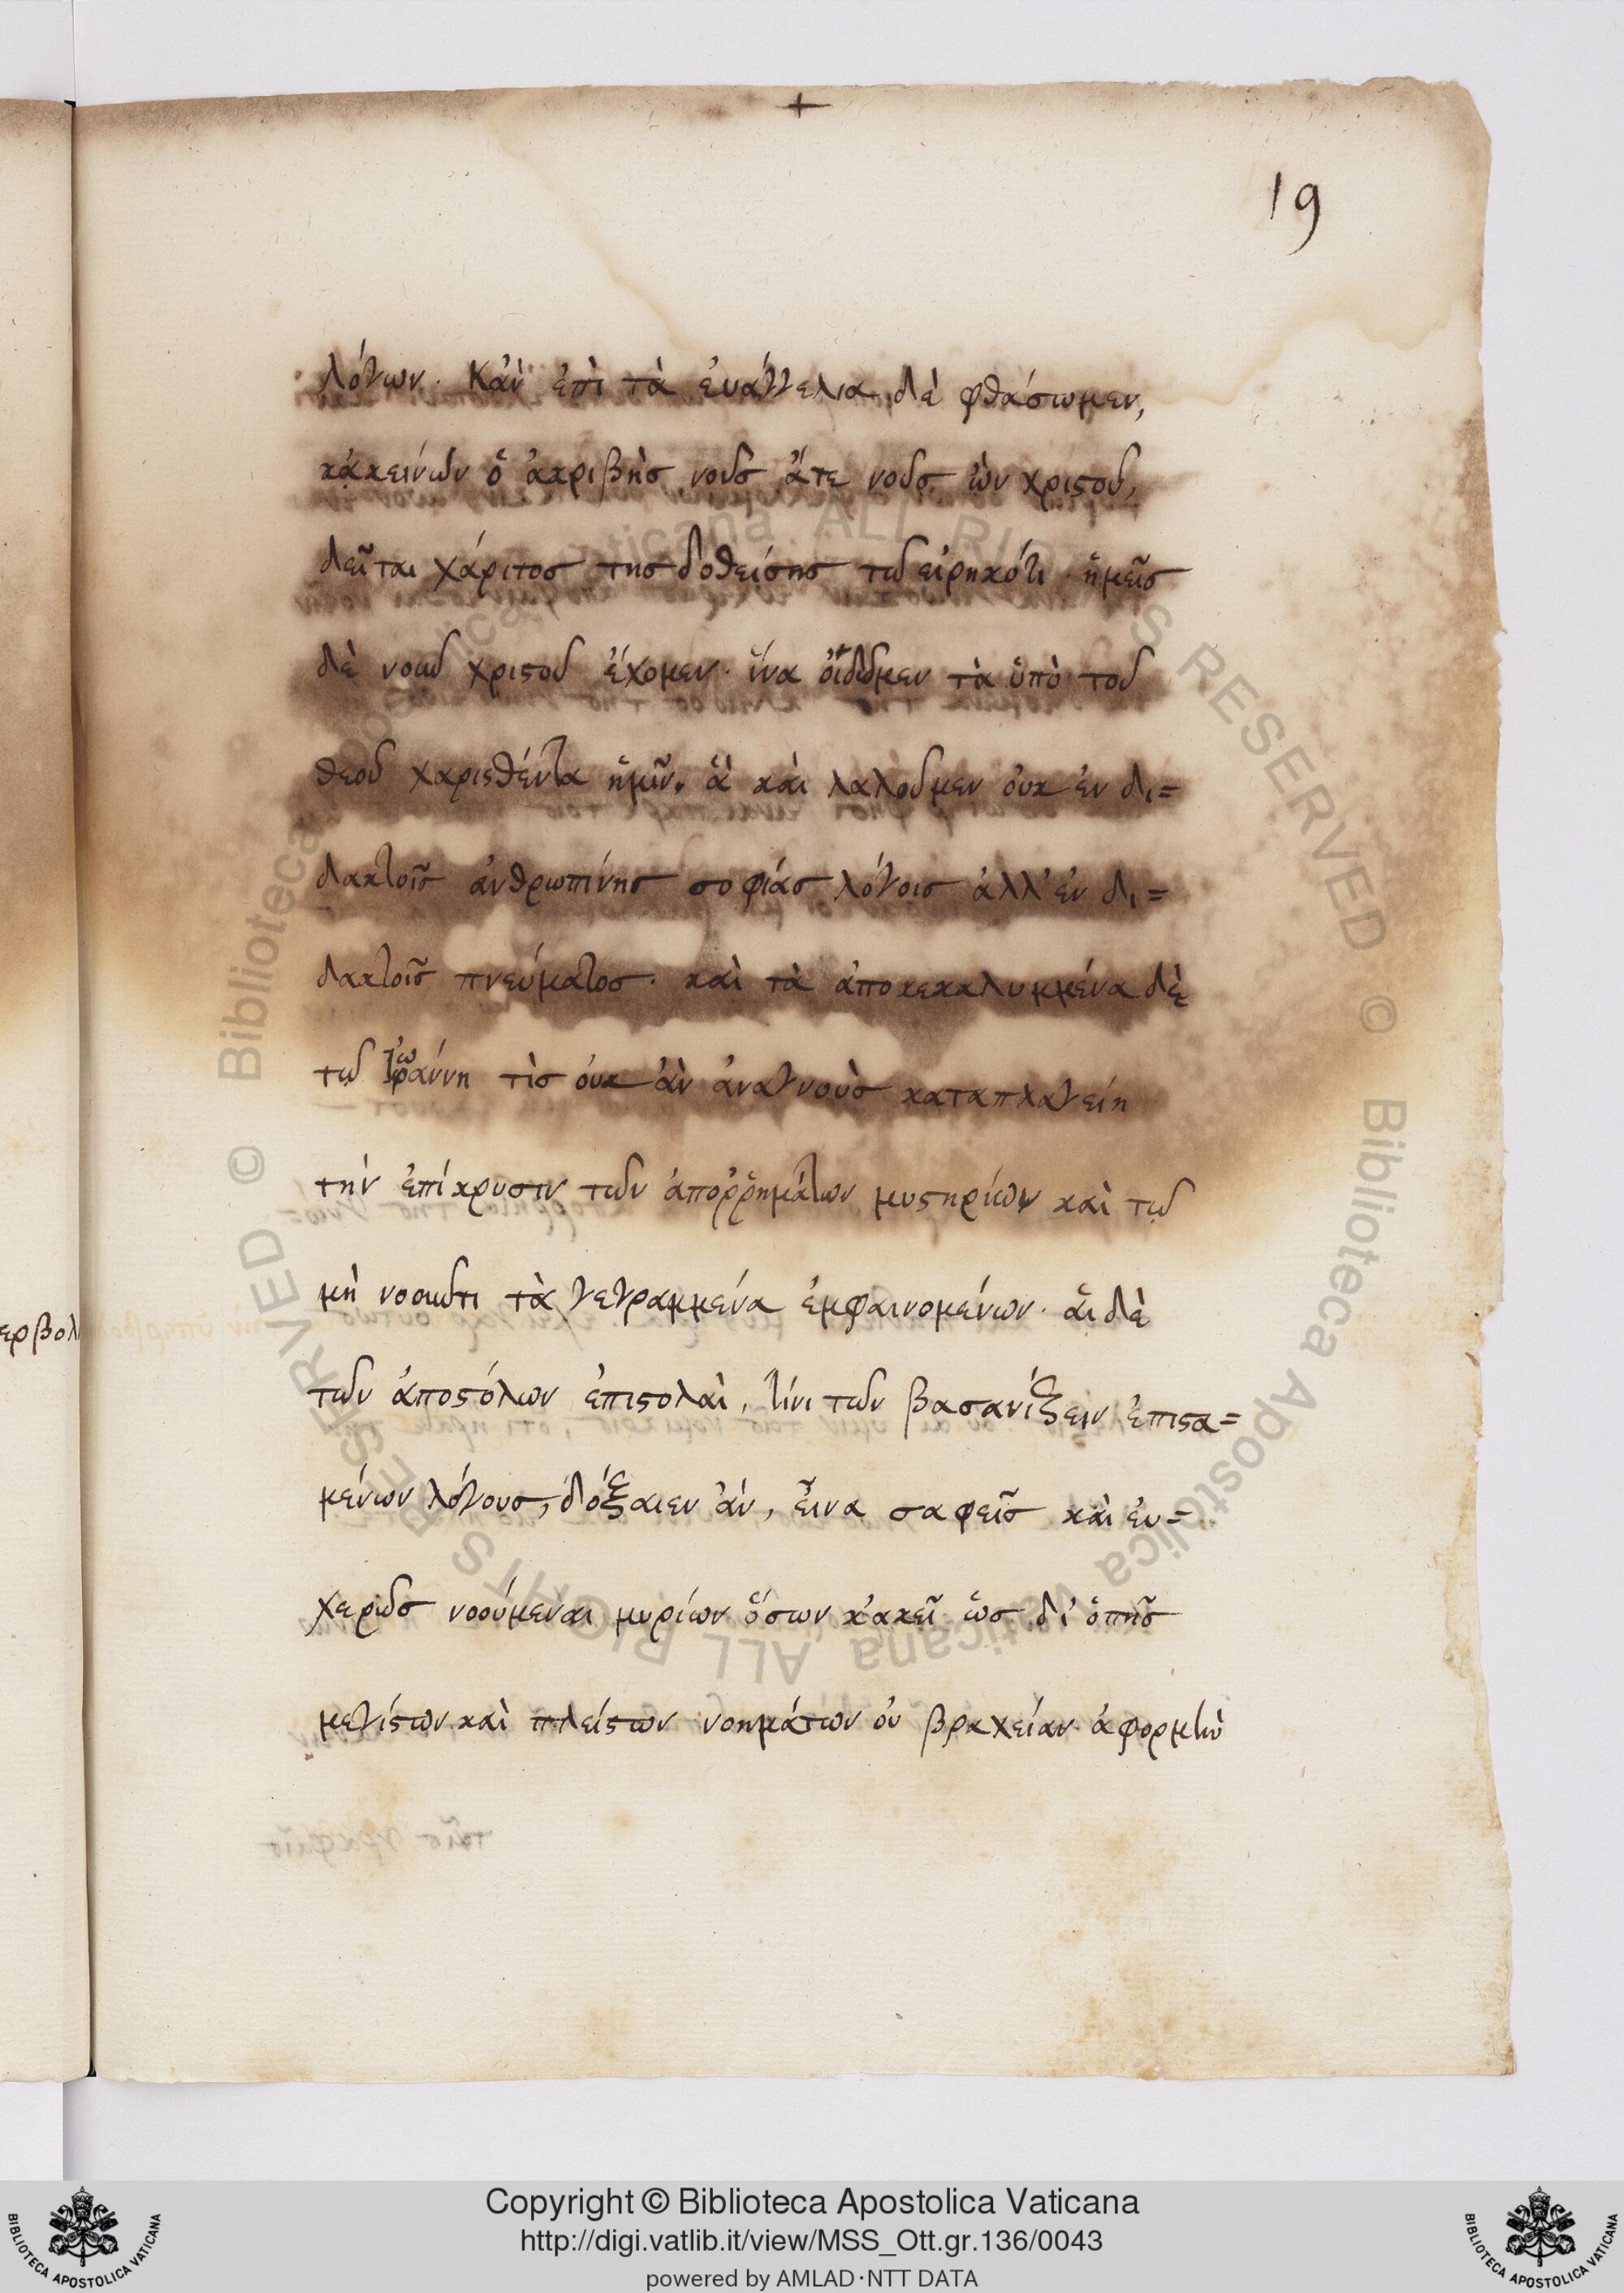 19
λόγων. Κἂν ἐπὶ τὰ ἐυαγγελια δὲ φθάσωμεν,
κᾀκεινών ὁ ἀκριβὴσ νοῦσ ἅτε νοῦσ ὢν χριστοῦ,
δεῖται χάριτοσ τησ δοθείσησ τῷ εἰρηκότι. ἡμεῖσ
δὲ νοῦν χριστοῦ ἔχομεν. ἵνα τὰ ὑπὸ τοῦ
θεοῦ χαρισθέντα ἡμῖν. ἃ καὶ λαλοῦμεν ὀυκ ἐν δι=
δακτοῖσ ἀνθρωπίνησ σοφιάσ λόγοισ ἀλλ' ἐν δι=
δακτοῖσ πνεύματοσ. καὶ τὰ ἀποκεκαλυμμένα δὲ
τῷ Ἰωάννη τὶσ ὀυκ ἂν ἀναγνοὺσ καταπλαγείη
τὴν ἐπίκρυσιν τῶν ἀποῤῥημάτων μυστηρίων καὶ τῷ
μὴ νοοῦντι τὰ γεγραμμένα ἐμφαινομένων. ἅι δὲ
τῶν ἀποστόλων ἐπιστολαὶ, τίνι τῶν βασανίζειν ἐπιστα=
μένων λόγουσ, δόξαιεν ἂν, εἶνα σαφεῖσ καὶ ἐυ=
χερῶσ νοούμεναι μυρίων ὅσων κ'ακεῖ ὡσ δι' ὀπῆσ
μεγίστων καὶ πλείστων νοημάτων ὀυ βραχείαν ἀφορμὴν
ερβολ
Copyright © Biblioteca Apostolica Vaticana
http://digi.vatlib.it/view/MSS_Ott.gr.136/0043
powered by AMLAD·NTT DATA
BIBLIOTECA APOSTOLICA VATICANA
BIBLIOTECA APOSTOLICA VATICANA
© Biblioteca Apostolica Vaticana ALL RIGHTS RESERVED © Biblioteca Apostolica Vaticana ALL RIGHTS RESERVED